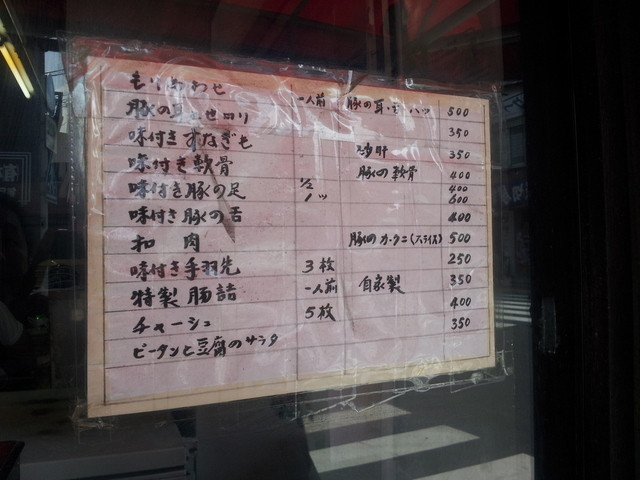 もりあわせ 一人前 豚の耳・舌・ハツ 500
豚の耳とせロリ 350
味付きすなぎも 砂肝 350
味付き軟骨 豚の軟骨 400
味付き豚の足 1/2 400
1ツ 600
味付き豚の舌 400
和肉 豚のカクニ(スライス) 500
味付き手羽先 3枚 250
特製腸詰 一人前 自家製 350
チャーシュ 5枚 400
ピータンと豆腐のサラダ 350